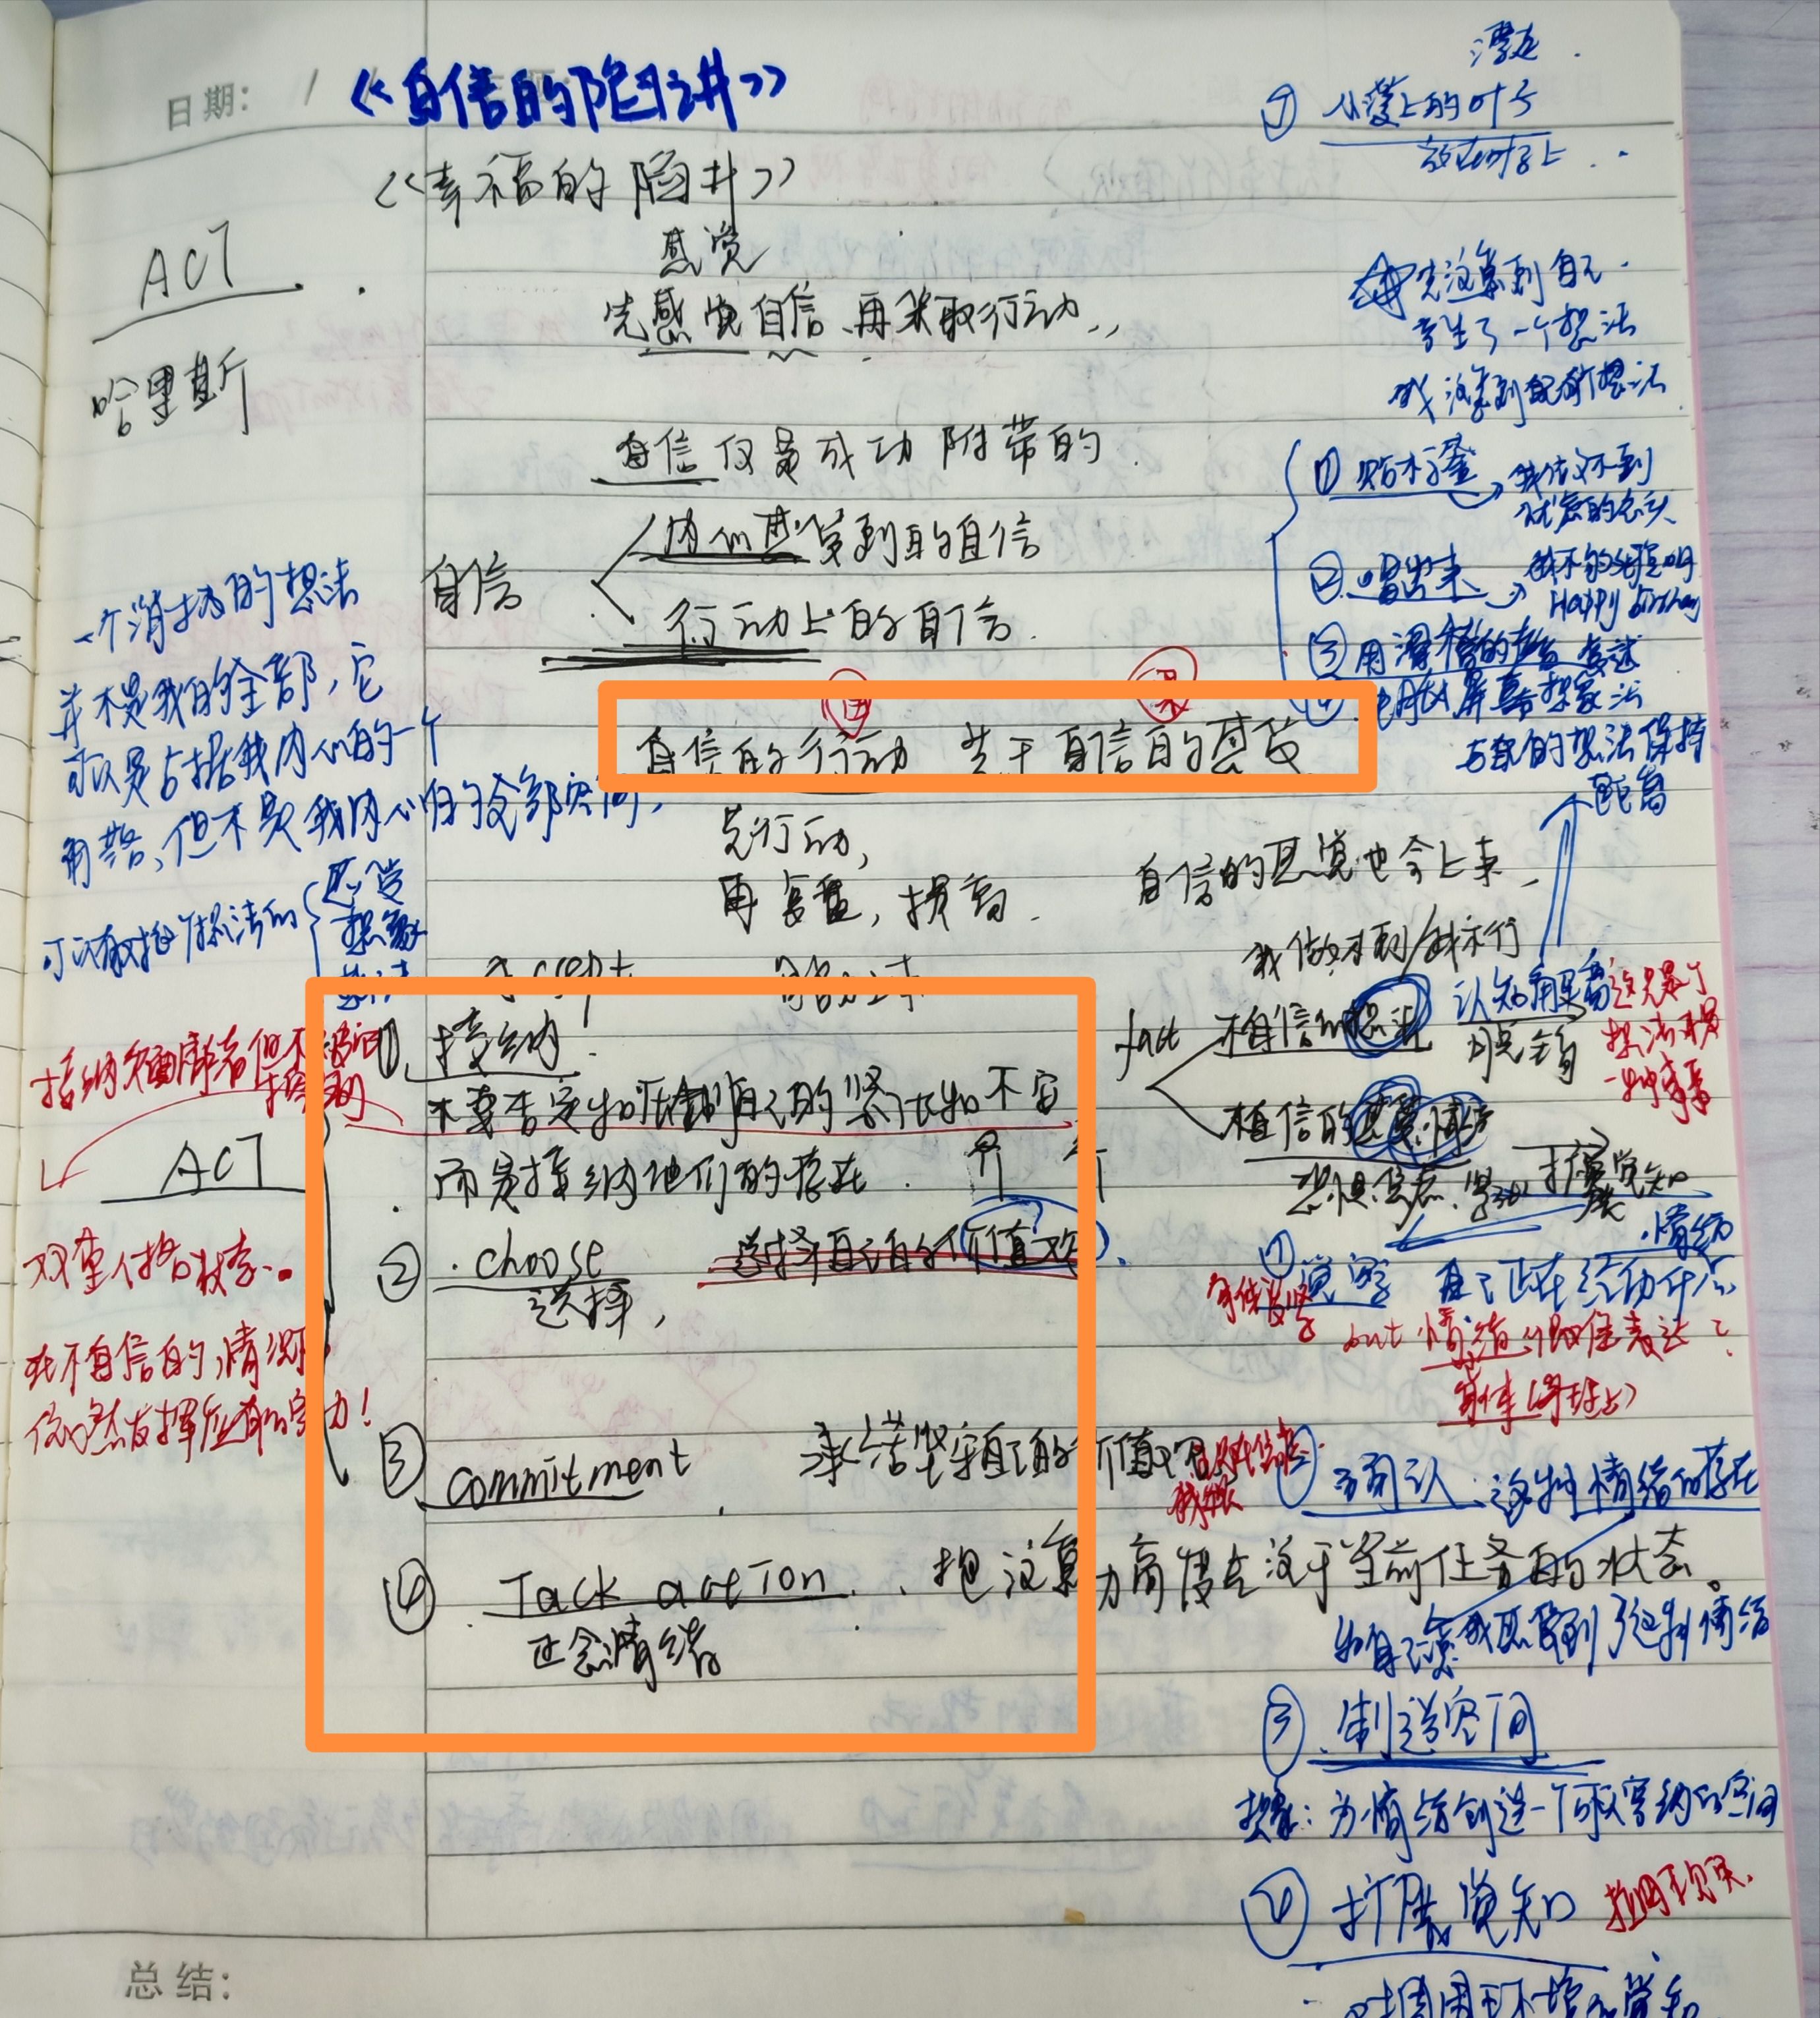 日期： /
《自信的陷讲》
《幸福的陷井》
ACT
哈里斯
感觉
先感觉自信、再采取行动,,
自信仅是成功附带的
自信
内心感觉到的自信
行动上的自信.
因 果
自信的行动 先于自信的感觉
先行动,
再复盘, 提高.
自信的感觉也会上来
一个消极的想法
并不是我的全部, 它
可以是占据我内心的一个
角落, 但不是我内心的全部空间,
感觉
ACT
双重人格状态..
在不自信的情况下
依然发挥应有的实力!
① 接纳.
不要否定和压抑自己的紧张和不安
而是接纳他们的存在.
② .choose 选择自己的价值观.
选择,
③ commitment 承诺坚守自己的价值观
④ Tack action. . 把注意力高度专注于当前任务的状态。
正念情绪
总结：
漂在.
小溪上的叶子
放在叶子上..
先注意到自己.
产生了一个想法
我注意到我有个想法
① 贴标签 我做不到
② 唱出来
Happy birthday
③ 用滑稽的声音复述
④ 电脑屏幕想象法
与我的想法保持
距离
我做不到/我不行
fact 不自信的想法
认知
这只是个
想法不是
一种事实
不自信的感觉.情绪
恐惧.焦虑.紧张 扩展觉知
.情绪
① 觉察 自己正在经历什么
but 情绪
身体(身体上)
② 承认：这种情绪的存在
给自己读我感受到了这种情绪
③ 制造空间
想象：为情绪创造一个可以容纳的空间
④ 扩展觉知
.对周围环境的觉知